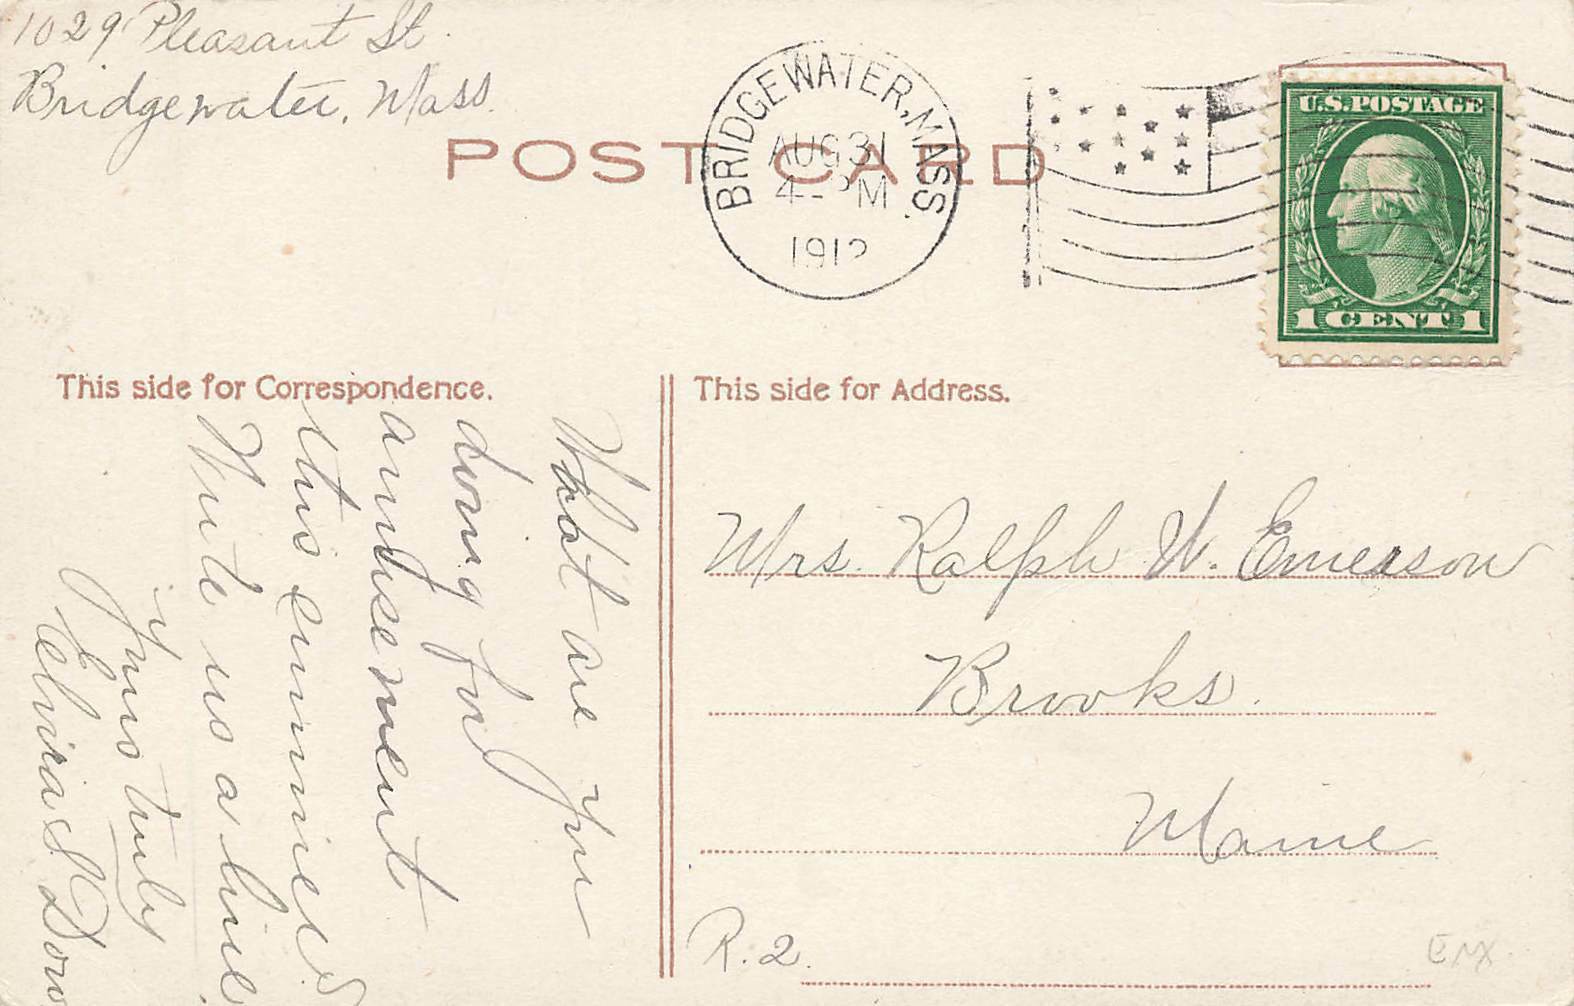 1029 Pleasant St.
Bridgewater, Mass.
POST CARD
BRIDGEWATER, MASS.
AUG 31
4 - PM
1912
U.S. POSTAGE
1 CENT 1
This side for Correspondence.
What are you
doing for
amusement
this summer?
Write us a line.
Yours truly
Elvira S. Dow
This side for Address.
Mrs. Ralph W. Emerson
Brooks.
Maine
R. 2.